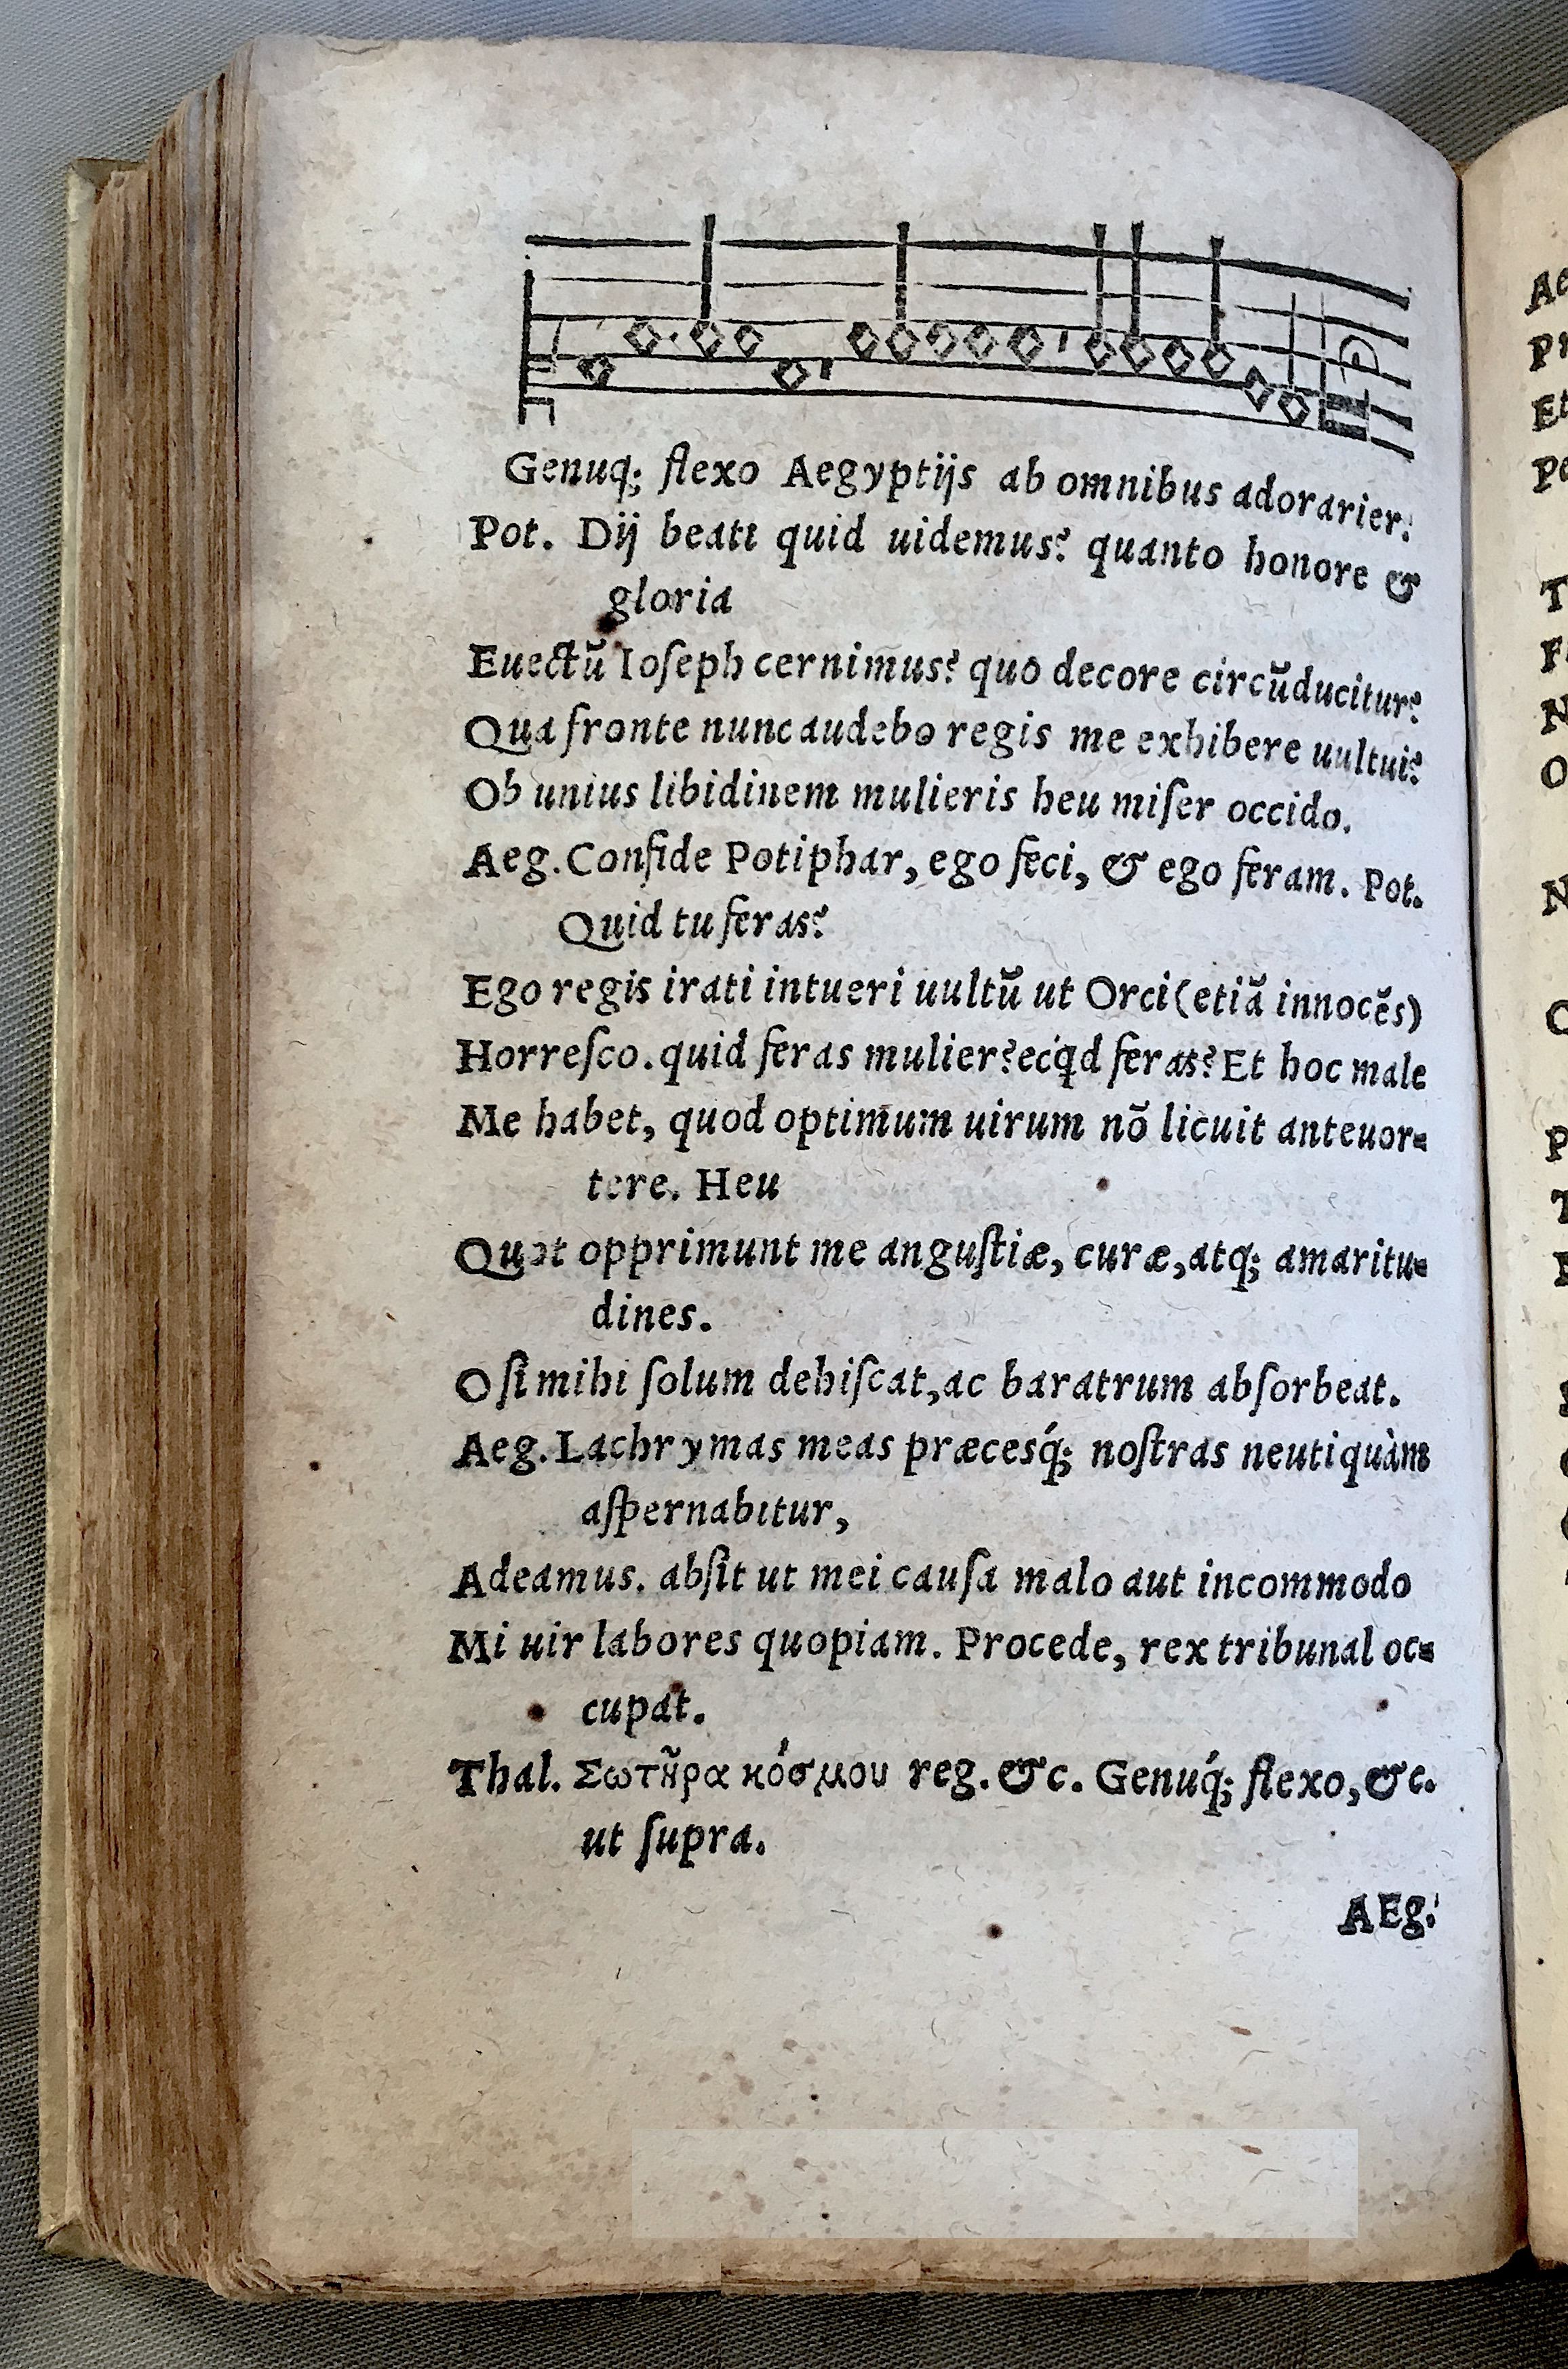 Genuq; flexo Aegyptijs ab omnibus adorarier:
Pot. Dij beati quid uidemus? quanto honore &
gloria
Euectū Ioſeph cernimus? quo decore circūducitur?
Qua fronte nunc audebo regis me exhibere uultui?
Ob unius libidinem mulieris heu miſer occido.
Aeg. Confide Potiphar, ego feci, & ego feram. Pot.
Quid tu feras?
Ego regis irati intueri uultū ut Orci (etiā innocēs)
Horreſco. quid feras mulier? ecqd feras? Et hoc male
Me habet, quod optimum uirum nō licuit anteuor=
tere. Heu
Quot opprimunt me anguſtiæ, curæ, atq; amaritu=
dines.
O ſi mihi ſolum dehiſcat, ac baratrum abſorbeat.
Aeg. Lachrymas meas præcesq́; noſtras neutiquàm
aſpernabitur,
Adeamus. abſit ut mei cauſa malo aut incommodo
Mi uir labores quopiam. Procede, rex tribunal oc=
cupat.
Thal. Σωτῆρα κόσμου reg. &c. Genuq́; flexo, &c.
ut ſupra.
AEg.